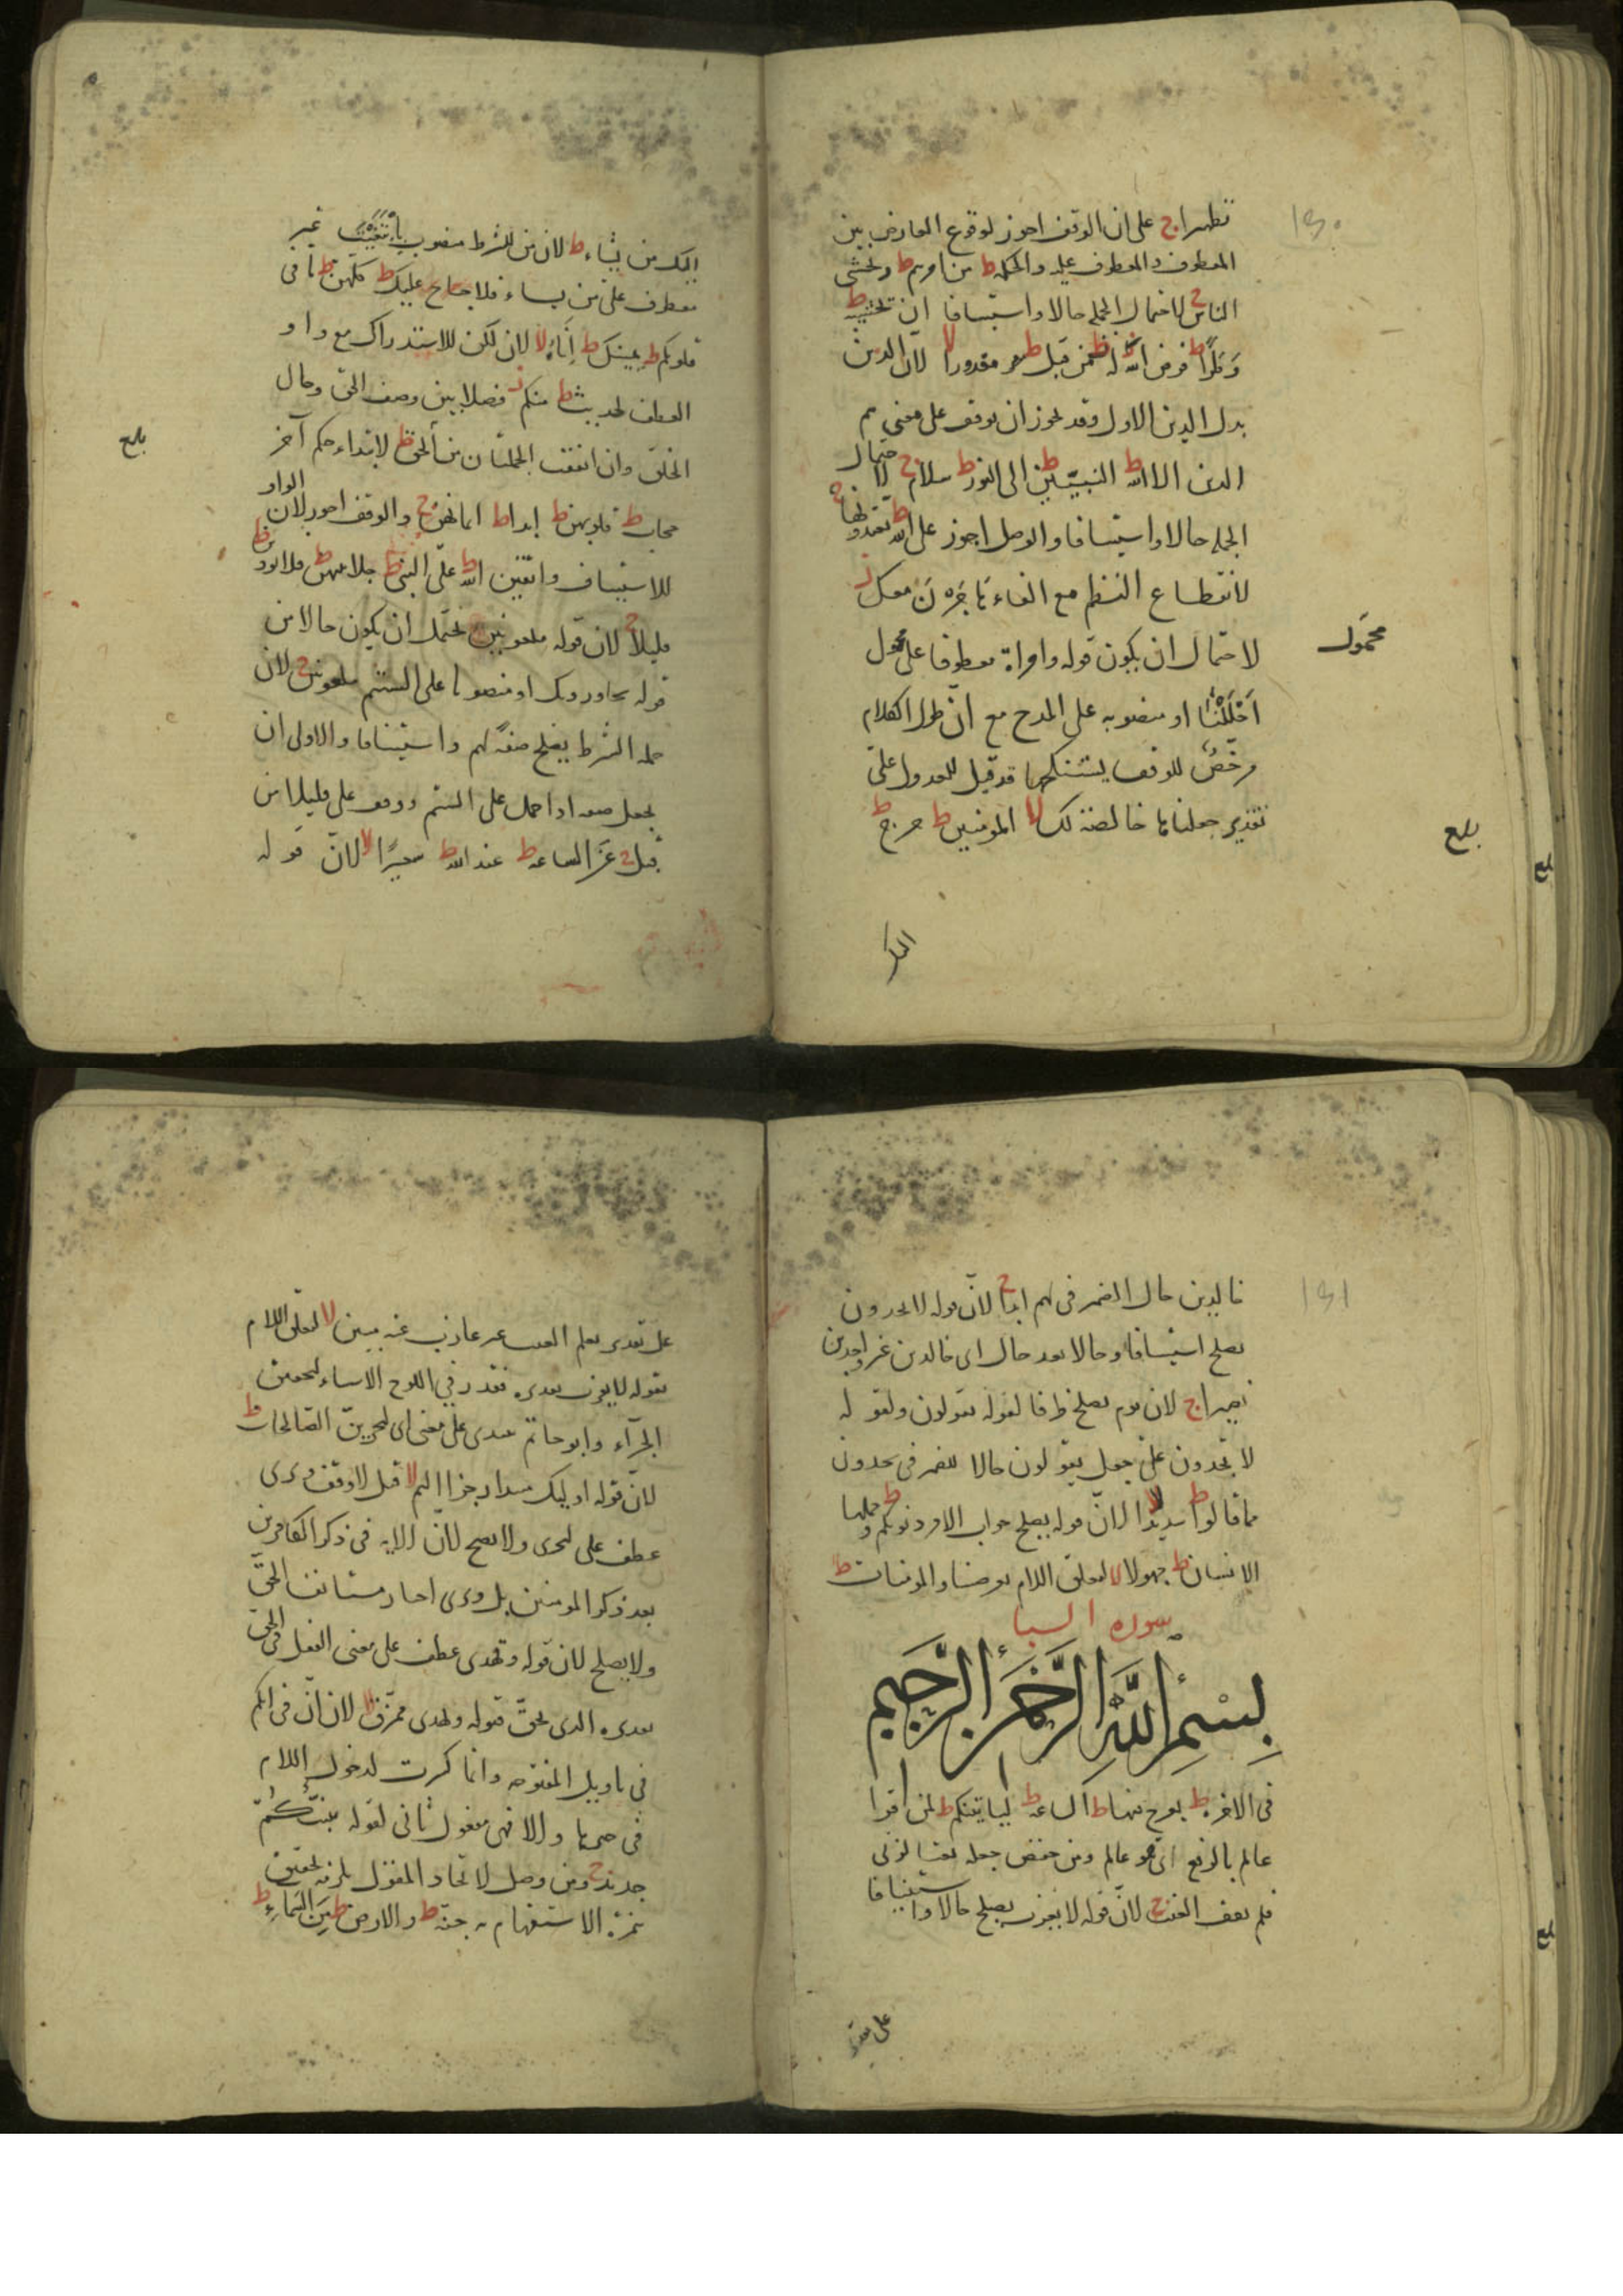 تطهيرا ج على ان الوقف اجوز لوقوع العارض بين
المعطوف والمعطوف عليه والحكمة ط من امرهم ط وتخشى
الناس ج لاحتمال الجملة حالا واستينافا ان تخشيه ط
وَطَرًا ط فرض الله له ط من قبل ط مقدورا لا لان الذين
بدل الذين الاول وقد يجوز ان يوقف على معنى هم
الذين الا الله ط النبيّين ط الى النور ط سلام ج لاحتمال
الجملة حالا واستينافا والوصل اجوز على الله ط تعتدونها ج
لانقطاع النظم مع الفاء هاجرن معك ز
لاحتمال ان يكون قوله وامراة معطوفا على
محمول
اَحْلَلْنَا او منصوبه على المدح مع ان طول الكلام
مرخّص للوقف قد قيل للعدول على
تقدير جعلناها خالصة لك لا المومنين ط حرج ط
بلغ
اليك
اليك من يشاء ط لان من للشرط منصوب بابْتَغَيْتَ غير
معطوف على من يساء فلا جناح عليك ط كلهن ط ما فى
قلوبكم ط يمينك ط إِنَاهُ لا لان لكن للاستدراك مع واو
العطف لحديث ط منكم ز فصلا بين وصف الحق وحال
الخلق وان اتفقت الجملتان من الحق ط لابتداء حكم آخر
بلغ
حجاب ط قلوبهن ط ابدا ط ايمانهن ج والوقف اجوز لان الواو
للاستيناف واتقين الله ط على النبى ط جلابيبهن ط فلا يوذين ط
قليلا ج لان قوله ملعونين يحتمل ان يكون حالا من
قوله يجاورونك او منصوبا على الشتم ملعونين ج لان
جملة الشرط يصلح صفة لهم واستينافا والاولى ان
يجعل صفه اذا حمل على الشتم ووقف على قليلا من
قبل ج عن الساعه ط عند الله ط سعيرًا لا لان قوله
خالدين حال الضمير فى لهم ابدا ج لان قوله لا يجدون
يصلح استينافا وحالا بعد حال اى خالدين غير واجدين
نصيرا ج لان يوم يصلح ظرفا لقوله يقولون ولقوله
لا يجدون على جعل يقولون حالا للضمير فى يجدون
مما قالوا ط سديدًا لا لان قوله يصلح جواب الامر ذنوبكم ط وحملها
الانسان ط جهولا لا لتعلق اللام بعرضنا والمومنات ط
سوره السبا
بِسْمِ اللَّهِ الرَّحْمَنِ الرَّحِيمِ
فى الاخرة ط يعرج فيها ط الساعة ط ليأتينكم ط لمن اقرا
عالم بالرفع اى هو عالم ومن خفض جعله نعتا لربى
فلم يقف الغيب ج لان قوله لا يعزب يصلح حالا واستينافا
على تقدير
على تقدير يعلم الغيب غير عازب عنه مبين لا لتعلق اللام
بقوله لا يعزب تقديره فقدر فى اللوح الاشياء لتحقيق
الجزآء وابو حاتم على معنى اى ليجزينّ الصّالحات ط
لان قوله اوليك مبتدا رجز اليم لا قيل لا وقف ويرى
عطف على ليجزى ولا يصح لان الاية فى ذكر الكافرين
بعد ذكر المومنين بل ويرى اخبار مستانف الحقّ
ولا يصلح لان قوله ويهدى عطف على معنى الفعل فى الحق
تقديره الذى يحق قبوله ويهدى ممزّق لا لان ان فى انكم
فى تاويل المفتوحه وانما كسرت لدخول اللام
فى خبرها والا فهى مفعول ثانى لقوله يُنَبِّئُكُمْ
جديد ج ومن وصل لاتحاد المقول
الاستفهام به جنّة ط والارض ط مِنَ السَّمَاءِ ط